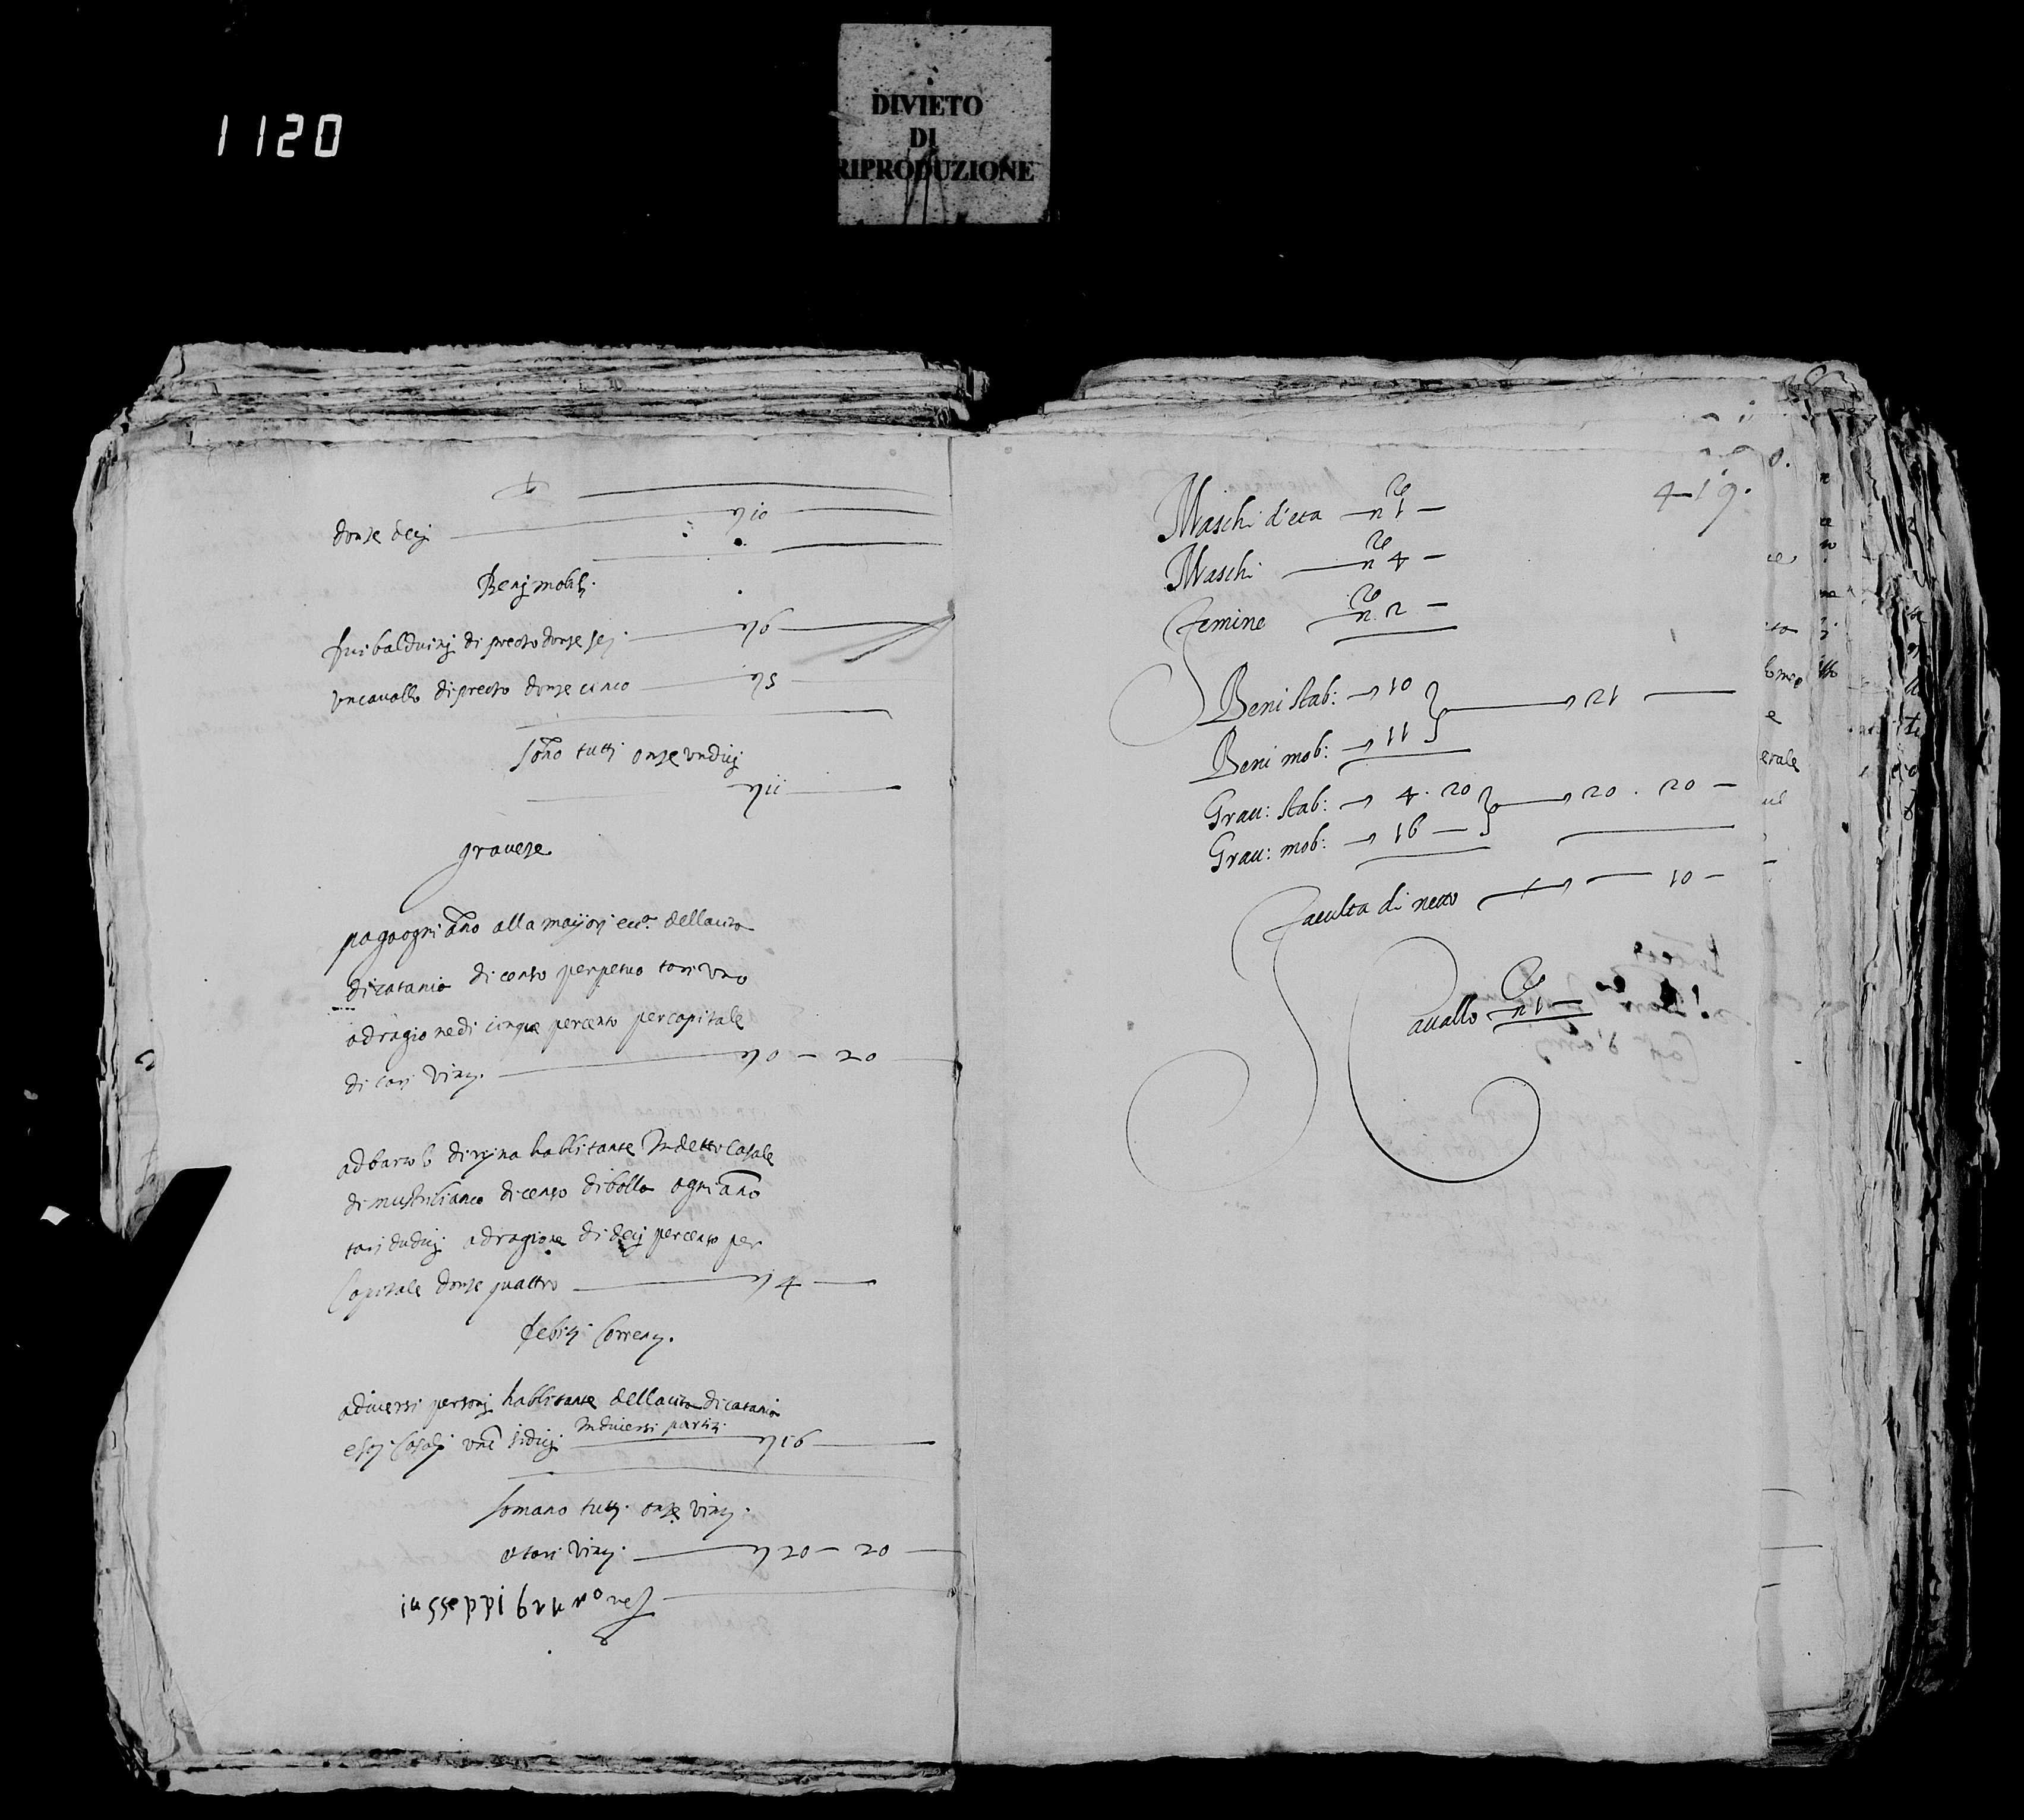 1120
DIVIETO
DI
RIPRODUZIONE
donze decj 10
Benj mobilj.
balduinj di prezzo donze sej 6
Un cavallo di prezzo donze cinco 5
sono tutti onze undicj
11
graveze
paga ogni anno alla maijori ecc.a della cita
di catania di censo perpetuo tari uno
ad ragione di cinque per cento per capitale
di tari vinti 0 - 20
ad bartolo di habbitante In detto Casale
di mustrilianco di censo di bolla ogni anno
tari dudicj ad ragione di decj per cento per
Capitale donze quattro 4
Debiti Correnti.
a diversi personj habbitante della cita di catania
e soj Casalj unc sidicj In diversi partiti 16
Somano tutti onze vinti
e tari vinti 20 - 20
iusseppi bruno
419.
Maschi d'eta n.o 1
Maschi n.o 4
Femine n.o 2
Beni stab: 10
21
Beni mob: 11
Grau: stab: 4 . 20
20 . 20
Grau: mob: 16
Faculta di netto 10
Cavallo n.o 1